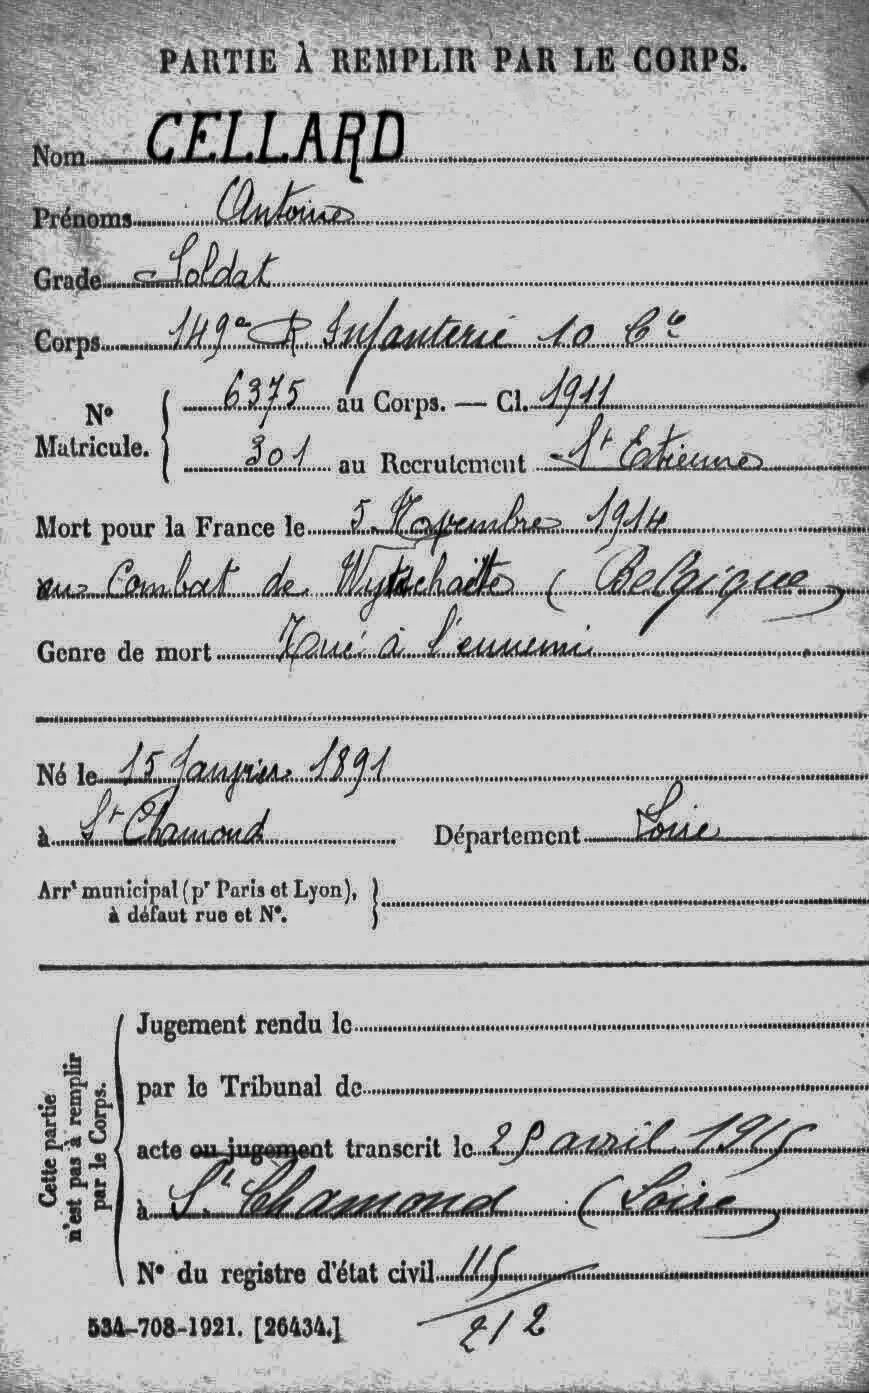 PARTIE À REMPLIR PAR LE CORPS.
Nom CELLARD
Prénoms Antoine
Grade Soldat
Corps 149e R Infanterie 10 Cie
N° Matricule. 6375 au Corps. — Cl. 1911
301 au Recrutement St Etienne
Mort pour la France le 5 Novembre 1914
au Combat de Wytschaëte (Belgique)
Genre de mort Tué à l'ennemi
Né le 15 Janvier 1891
à St Chamond Département Loire
Arrt municipal (pr Paris et Lyon),
à défaut rue et N°.
Cette partie
n'est pas à remplir
par le Corps.
Jugement rendu le
par le Tribunal de
acte ou jugement transcrit le 25 avril 1915
à St Chamond (Loire)
N° du registre d'état civil 115
212
534-708-1921. [26434.]